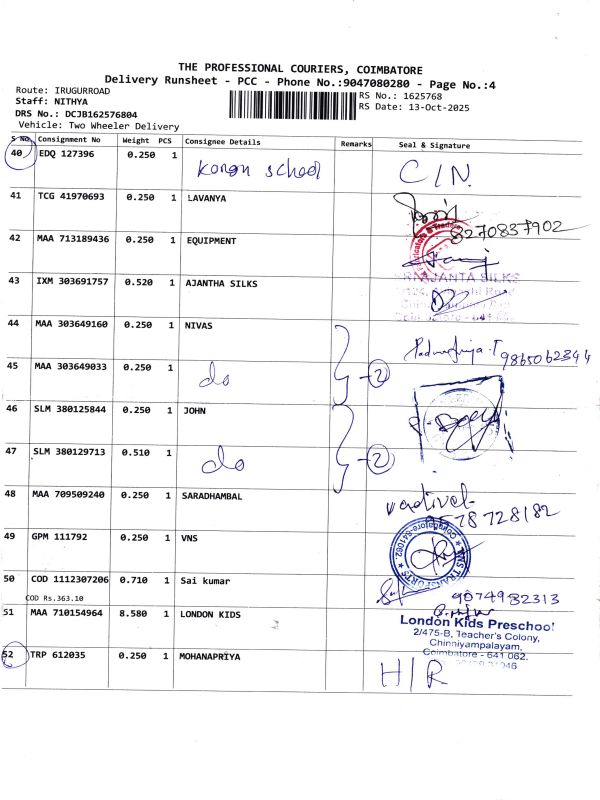 THE PROFESSIONAL COURIERS, COIMBATORE
Delivery Runsheet - PCC - Phone No.:9047080280 - Page No.:4
Route: IRUGURROAD
Staff: NITHYA
DRS No.: DCJB162576804
Vehicle: Two Wheeler Delivery
RS No.: 1625768
RS Date: 13-Oct-2025
S No. Consignment No Weight PCS Consignee Details Remarks Seal & Signature
40 EDQ 127396 0.250 1 C/N.
41 TCG 41970693 0.250 1 LAVANYA 8270837902
42 MAA 713189436 0.250 1 EQUIPMENT
43 IXM 303691757 0.520 1 AJANTHA SILKS
44 MAA 303649160 0.250 1 NIVAS
45 MAA 303649033 0.250 1 do 2 9865062344
46 SLM 380125844 0.250 1 JOHN
47 SLM 380129713 0.510 1 do 2
48 MAA 709509240 0.250 1 SARADHAMBAL vadivel 728182
49 GPM 111792 0.250 1 VNS
VNS TRANSPORTS Coimbatore-641062.
50 COD 1112307206 0.710 1 Sai kumar 9074982313
COD Rs.363.10
51 MAA 710154964 8.580 1 LONDON KIDS
London Kids Preschool
2/475-B, Teacher's Colony,
Chinniyampalayam,
Coimbatore - 641 062.
52 TRP 612035 0.250 1 MOHANAPRIYA H/R